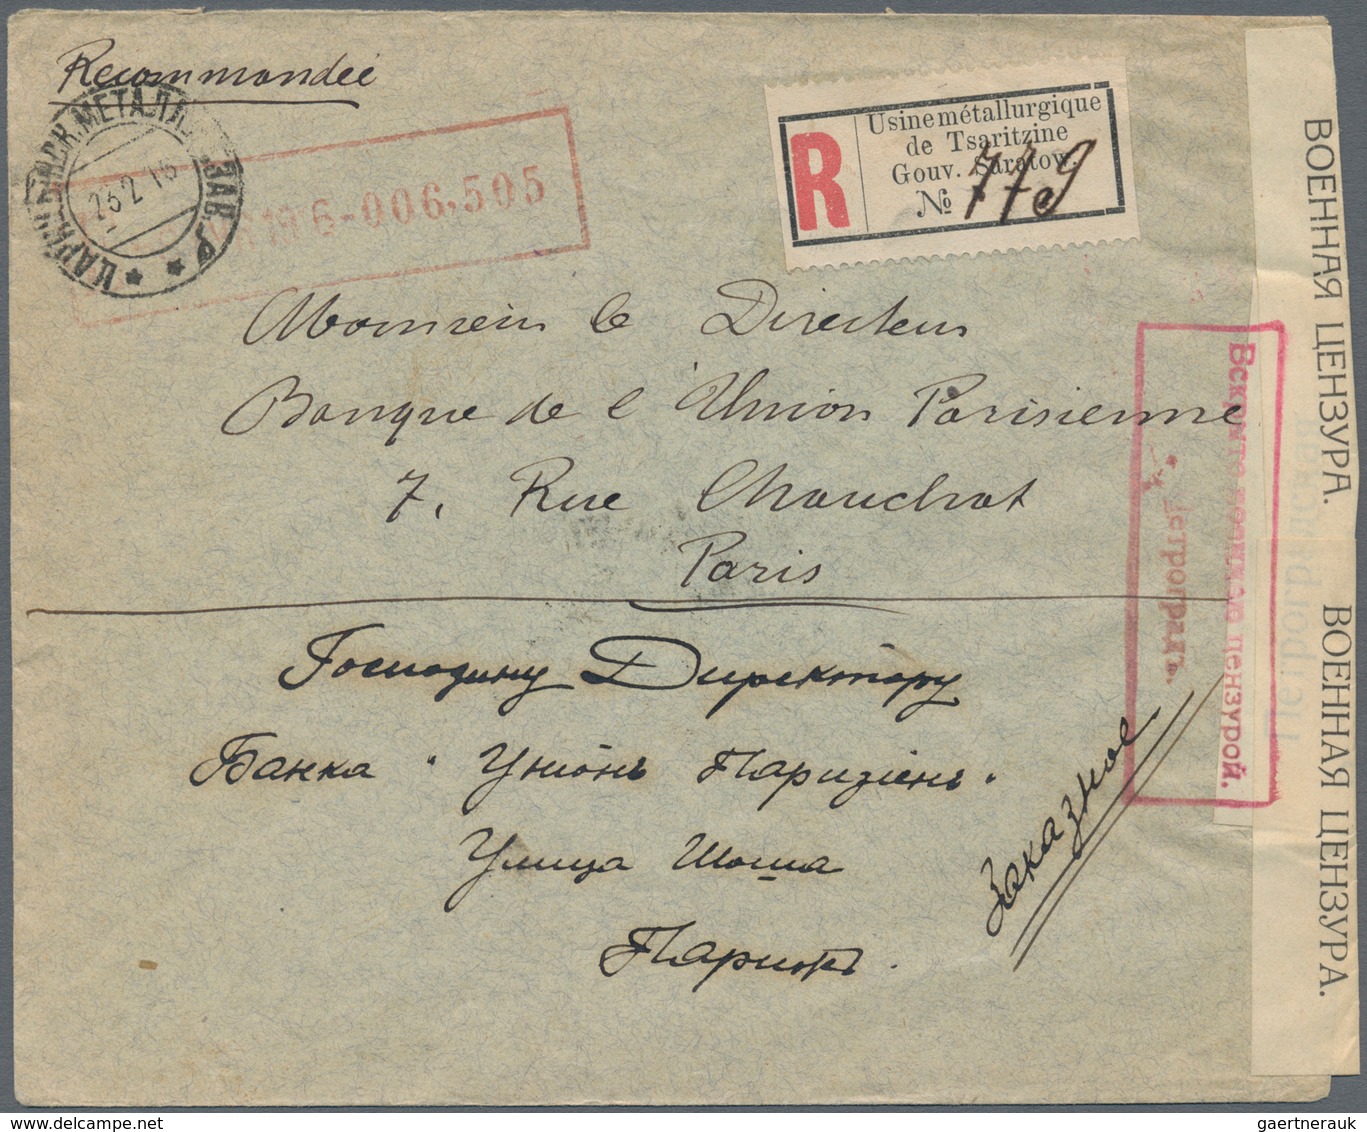 Recommandée
ЦАРИЦЫНСК. МЕТАЛЛ. ЗАВ.
23 2 16
6-006,505
R
Usine métallurgique
de Tsaritzine
Gouv. Saratow.
№ 779
Monsieur le Directeur
Banque de l'Union Parisienne
7, Rue Chauchat
Paris
Господину Директору
Банка "Унiонъ Паризiенъ"
Улица Шоша
Парижъ.
Заказное
Вскрыто военной цензурой.
Петроградъ.
ВОЕННАЯ ЦЕНЗУРА.
ВОЕННАЯ ЦЕНЗУРА.
gaertnerauk